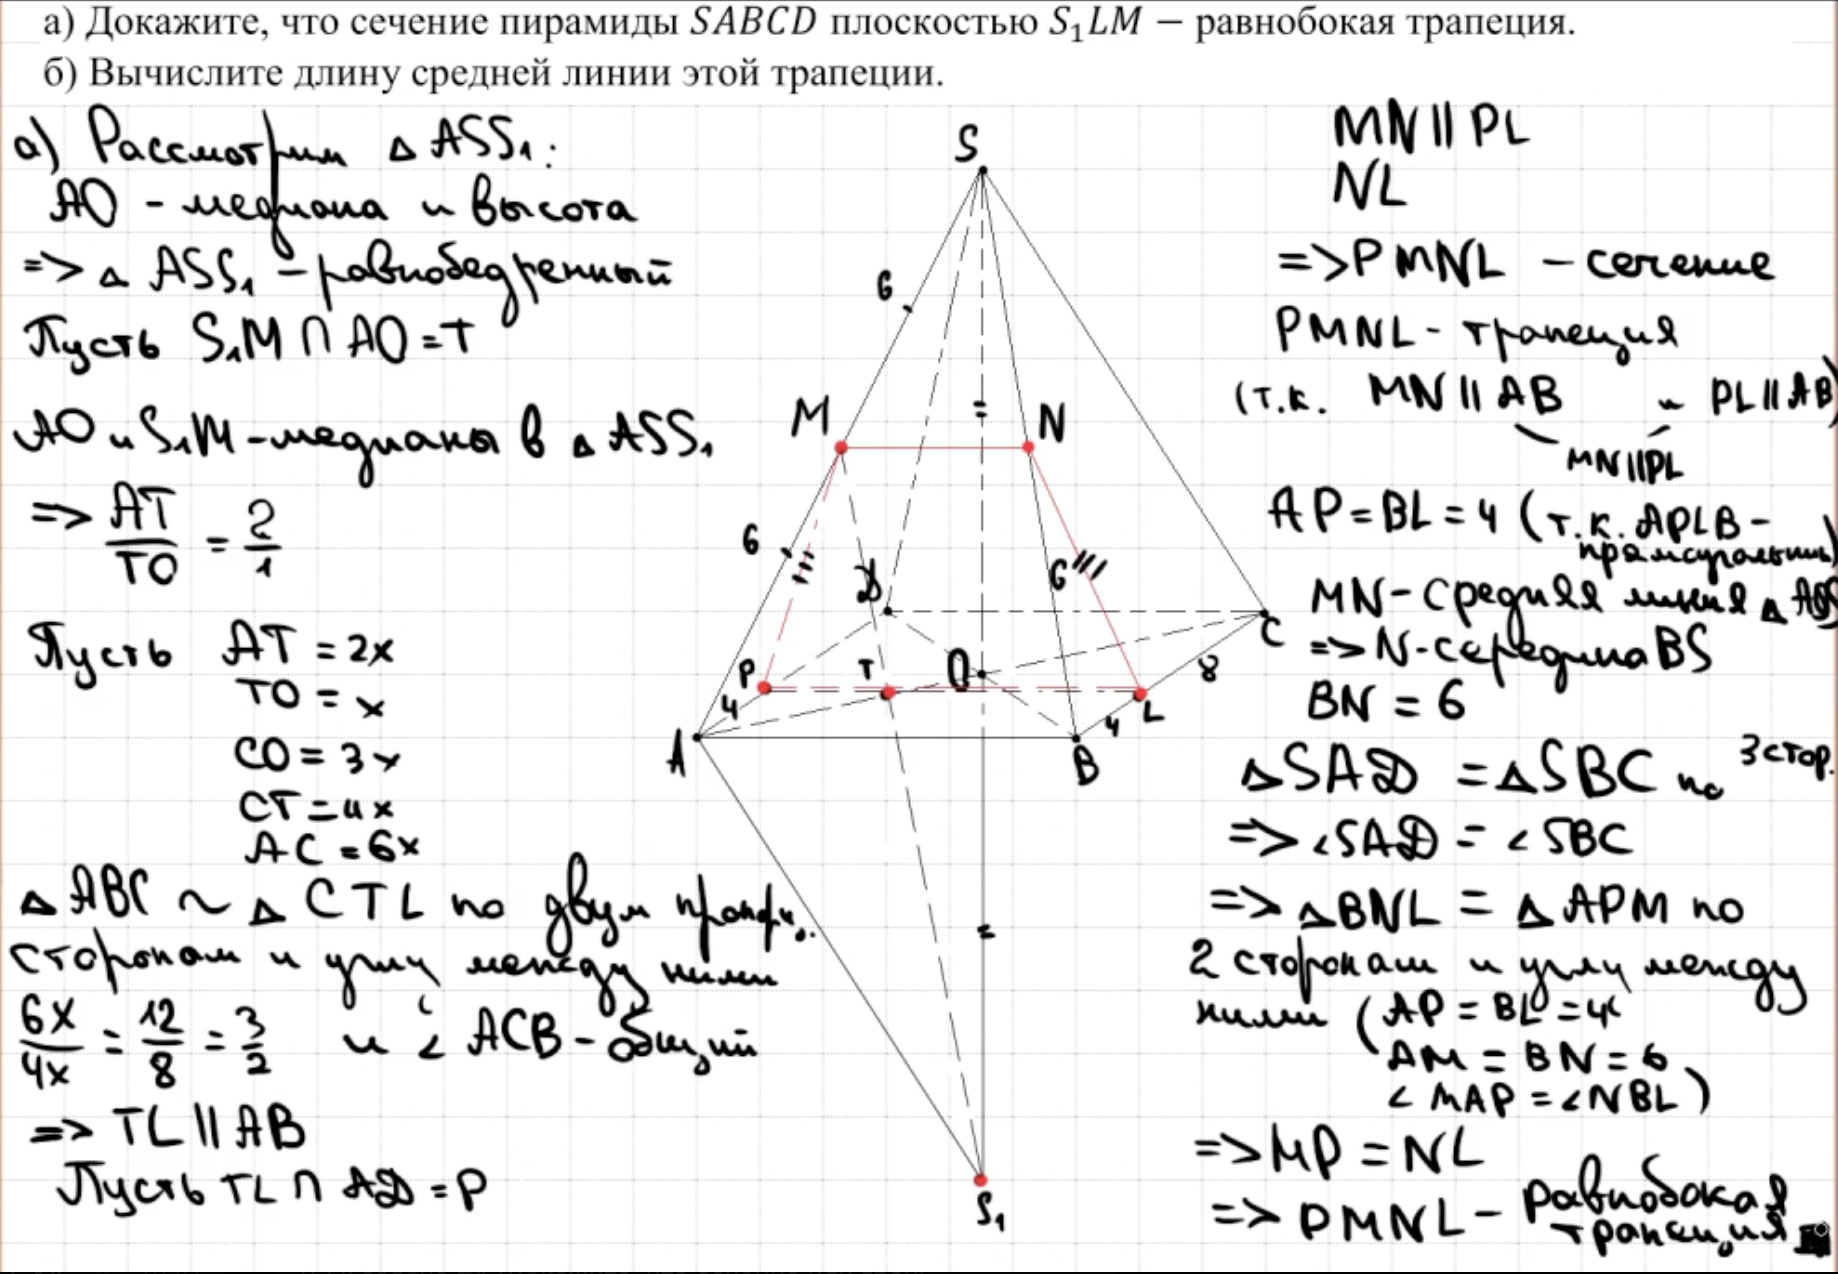 а) Докажите, что сечение пирамиды SABCD плоскостью S₁LM − равнобокая трапеция.
б) Вычислите длину средней линии этой трапеции.
а) Рассмотрим △ ASS₁:
AO - медиана и высота
=> △ ASS₁ - равнобедренный
Пусть S₁M ∩ AO = T
AO и S₁M - медианы в △ ASS₁
=> AT/TO = 2/1
Пусть AT = 2x
TO = x
CO = 3x
CT = 4x
AC = 6x
△ ABC ~ △ CTL по двум пропорц.
сторонам и углу между ними
6x/4x = 12/8 = 3/2 и ∠ ACB - общий
=> TL || AB
Пусть TL ∩ AD = P
S
6
M
=
N
6
D
6
P
T
O
C
8
4
L
4
A
B
=
S₁
MN || PL
NL
=> PMNL - сечение
PMNL - трапеция
(т.к. MN || AB и PL || AB)
MN || PL
AP = BL = 4 (т.к. APLB -
прямоугольник)
MN - средняя линия △
=> N - середина BS
BN = 6
△ SAD = △ SBC по 3 стор.
=> ∠SAD = ∠SBC
=> △ BNL = △ APM по
2 сторонам и углу между
ними (AP = BL = 4
AM = BN = 6
∠ MAP = ∠NBL)
=> MP = NL
=> PMNL - равнобокая
трапеция